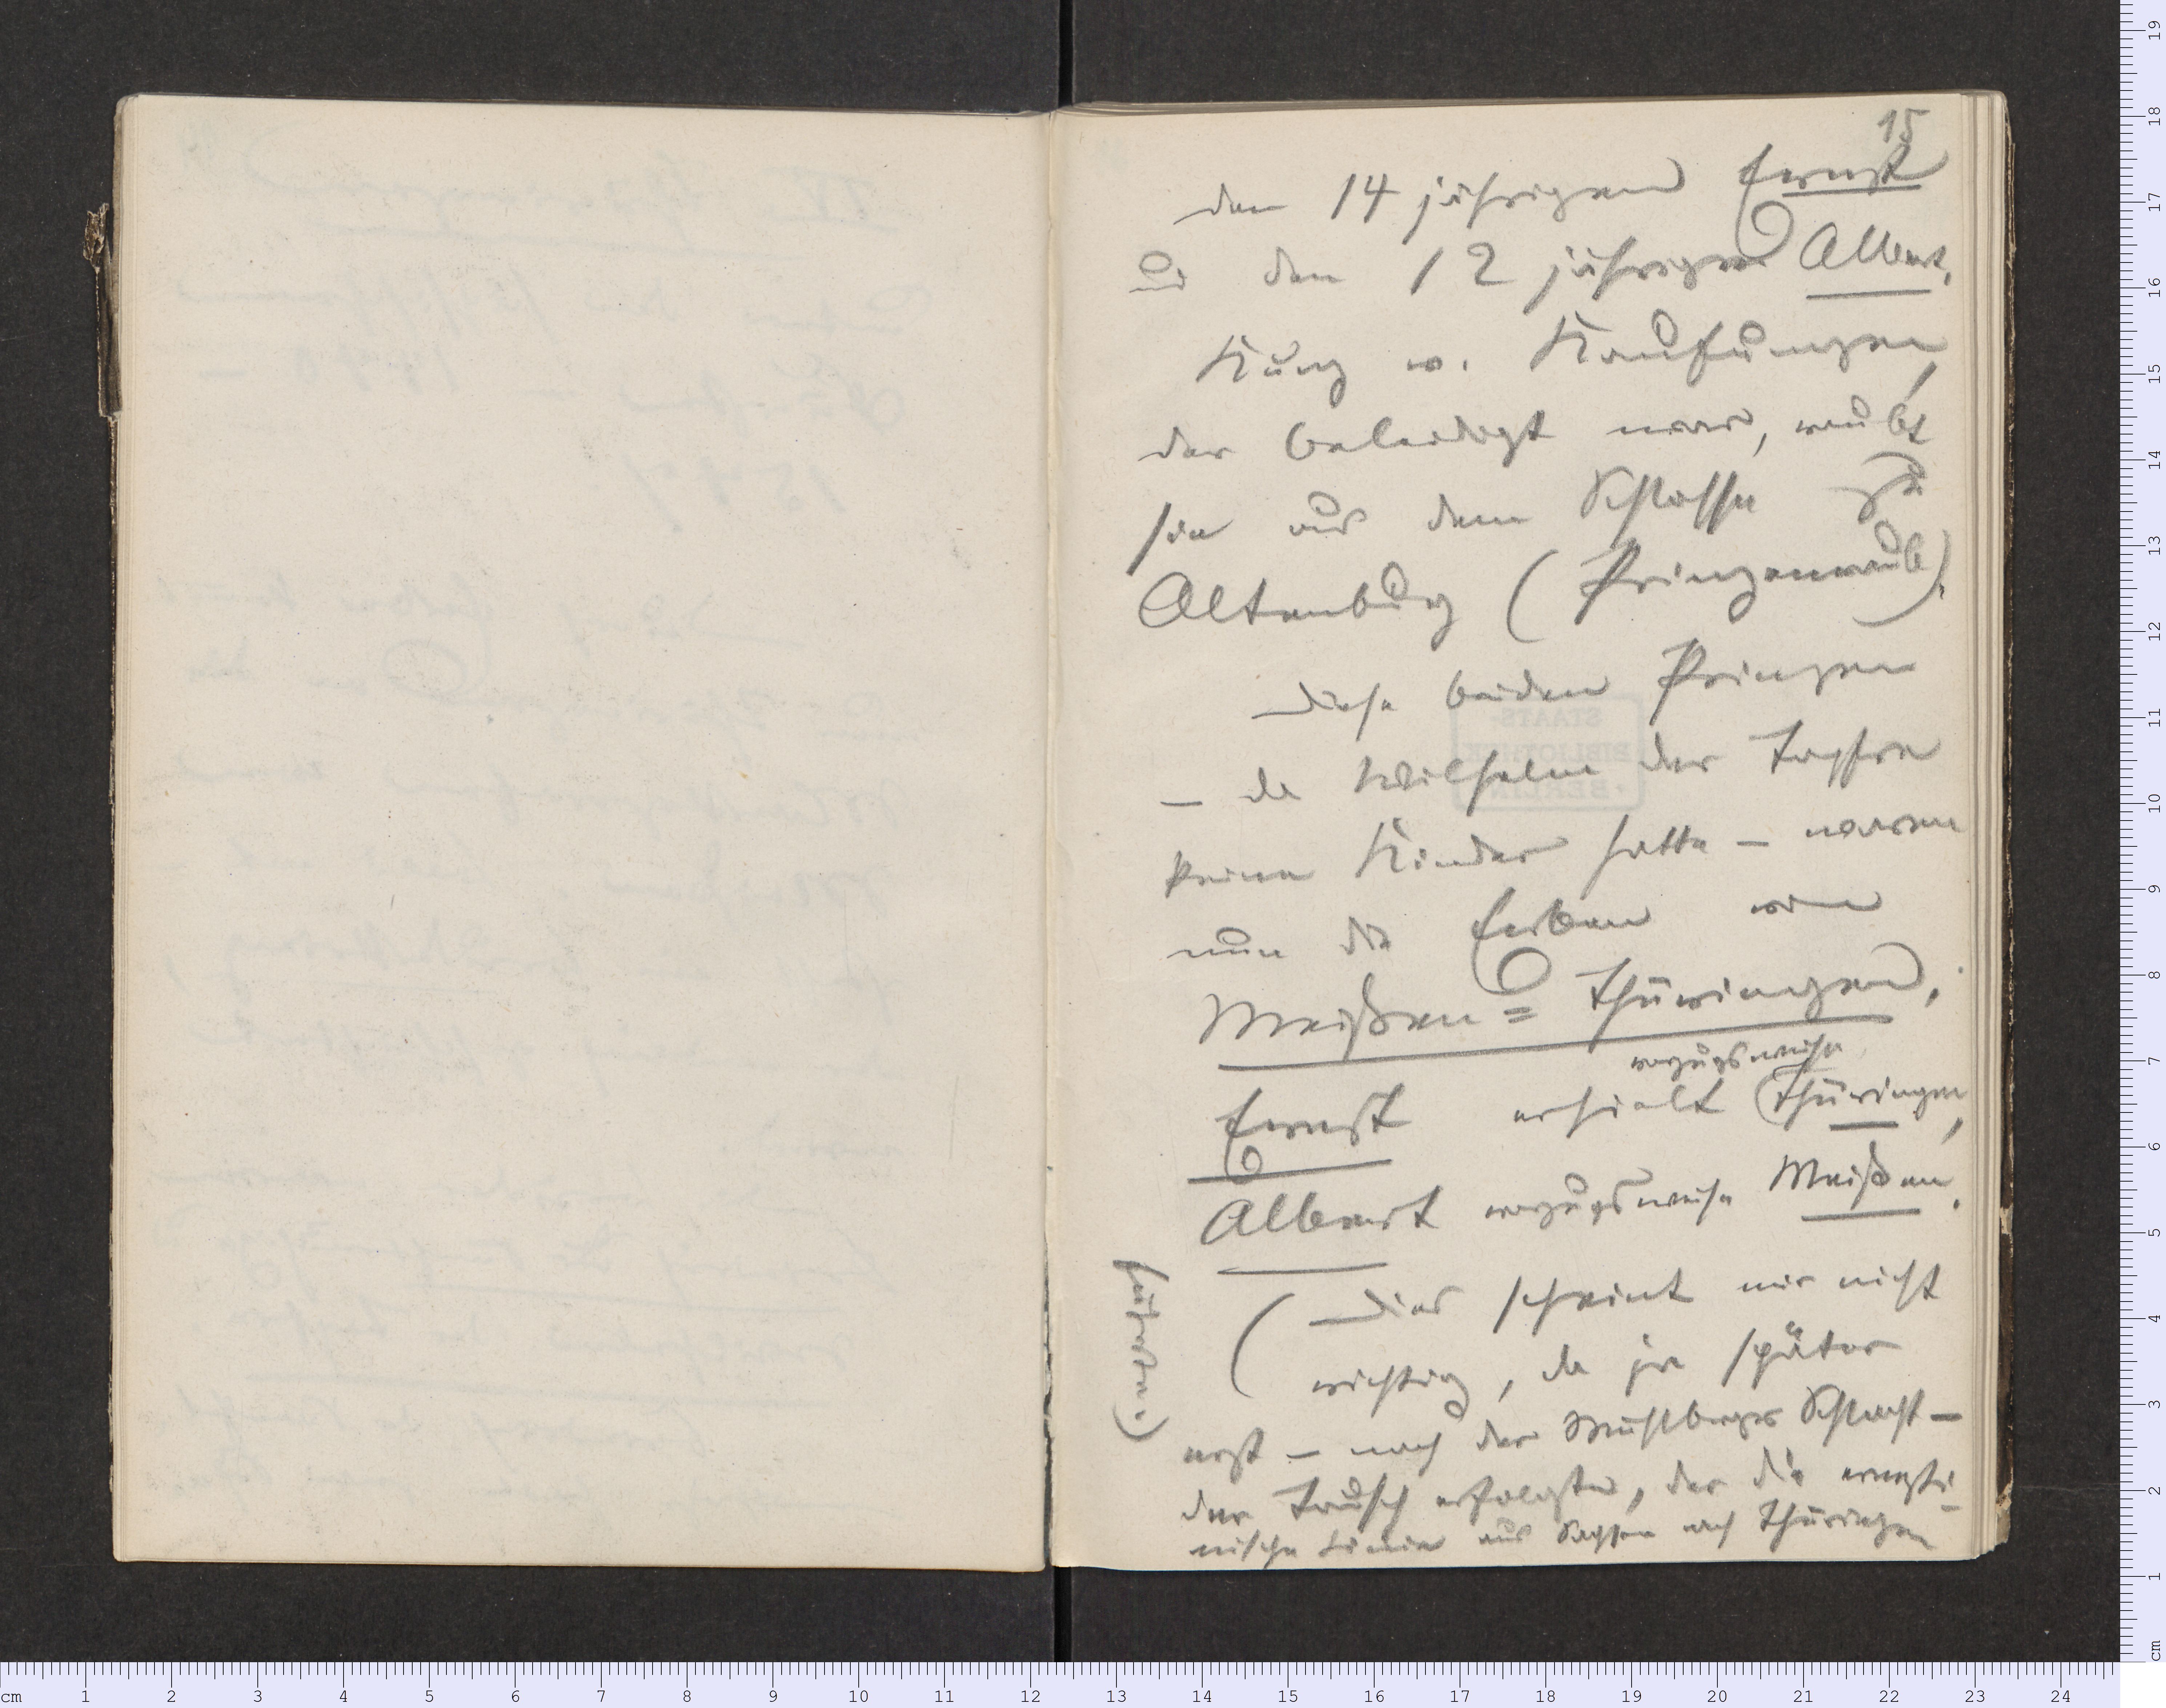 15
den 14 jährigen Ernst
u den 12 jährigen Albert.
Kunz v. Kaufungen,
der beleidigt war, raubt
sie aus dem Schlosse zu
Altenburg (Prinzenraub).
Diese beiden Prinzen
– da Wilhelm der Tapfre
keine Kinder hatte – waren
nun die Erben von
Meißen = Thüringen.
Ernst erhielt vorzugsweise Thüringen,
Albert vorzugsweise Meißen.
(Dies scheint mir nicht
richtig, da ja später
erst – nach der Mühlberger Schlacht –
der Tausch erfolgte, der die ernesti-
nische Linie aus Sachsen nach Thüringen
führte.)
STAATS-
BIBLIOTHEK
BERLIN